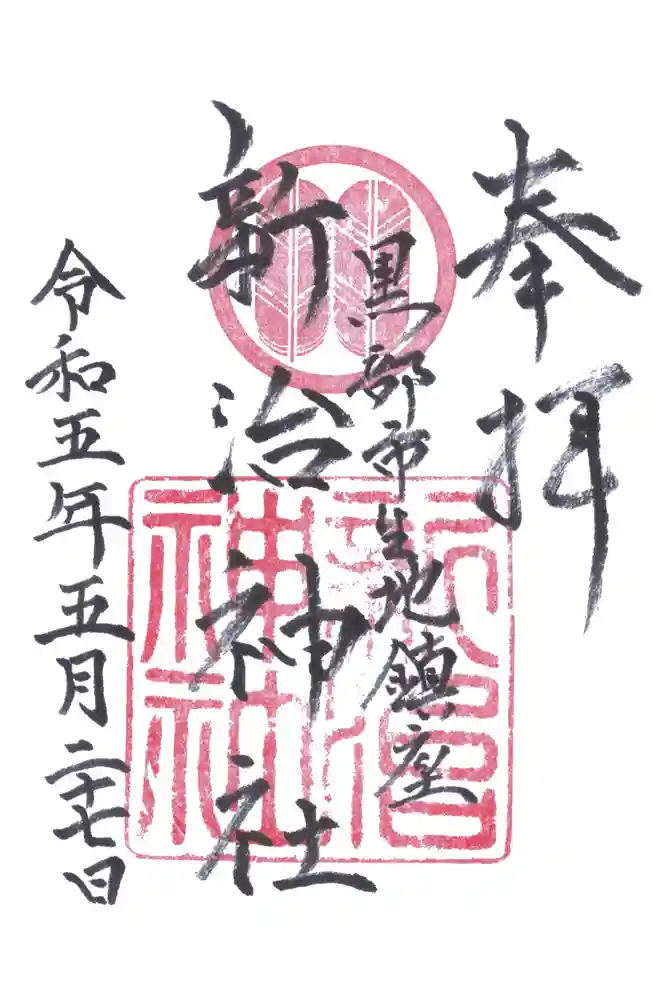 奉拝
黒部市生地鎮座
新治神社
令和五年五月二十七日